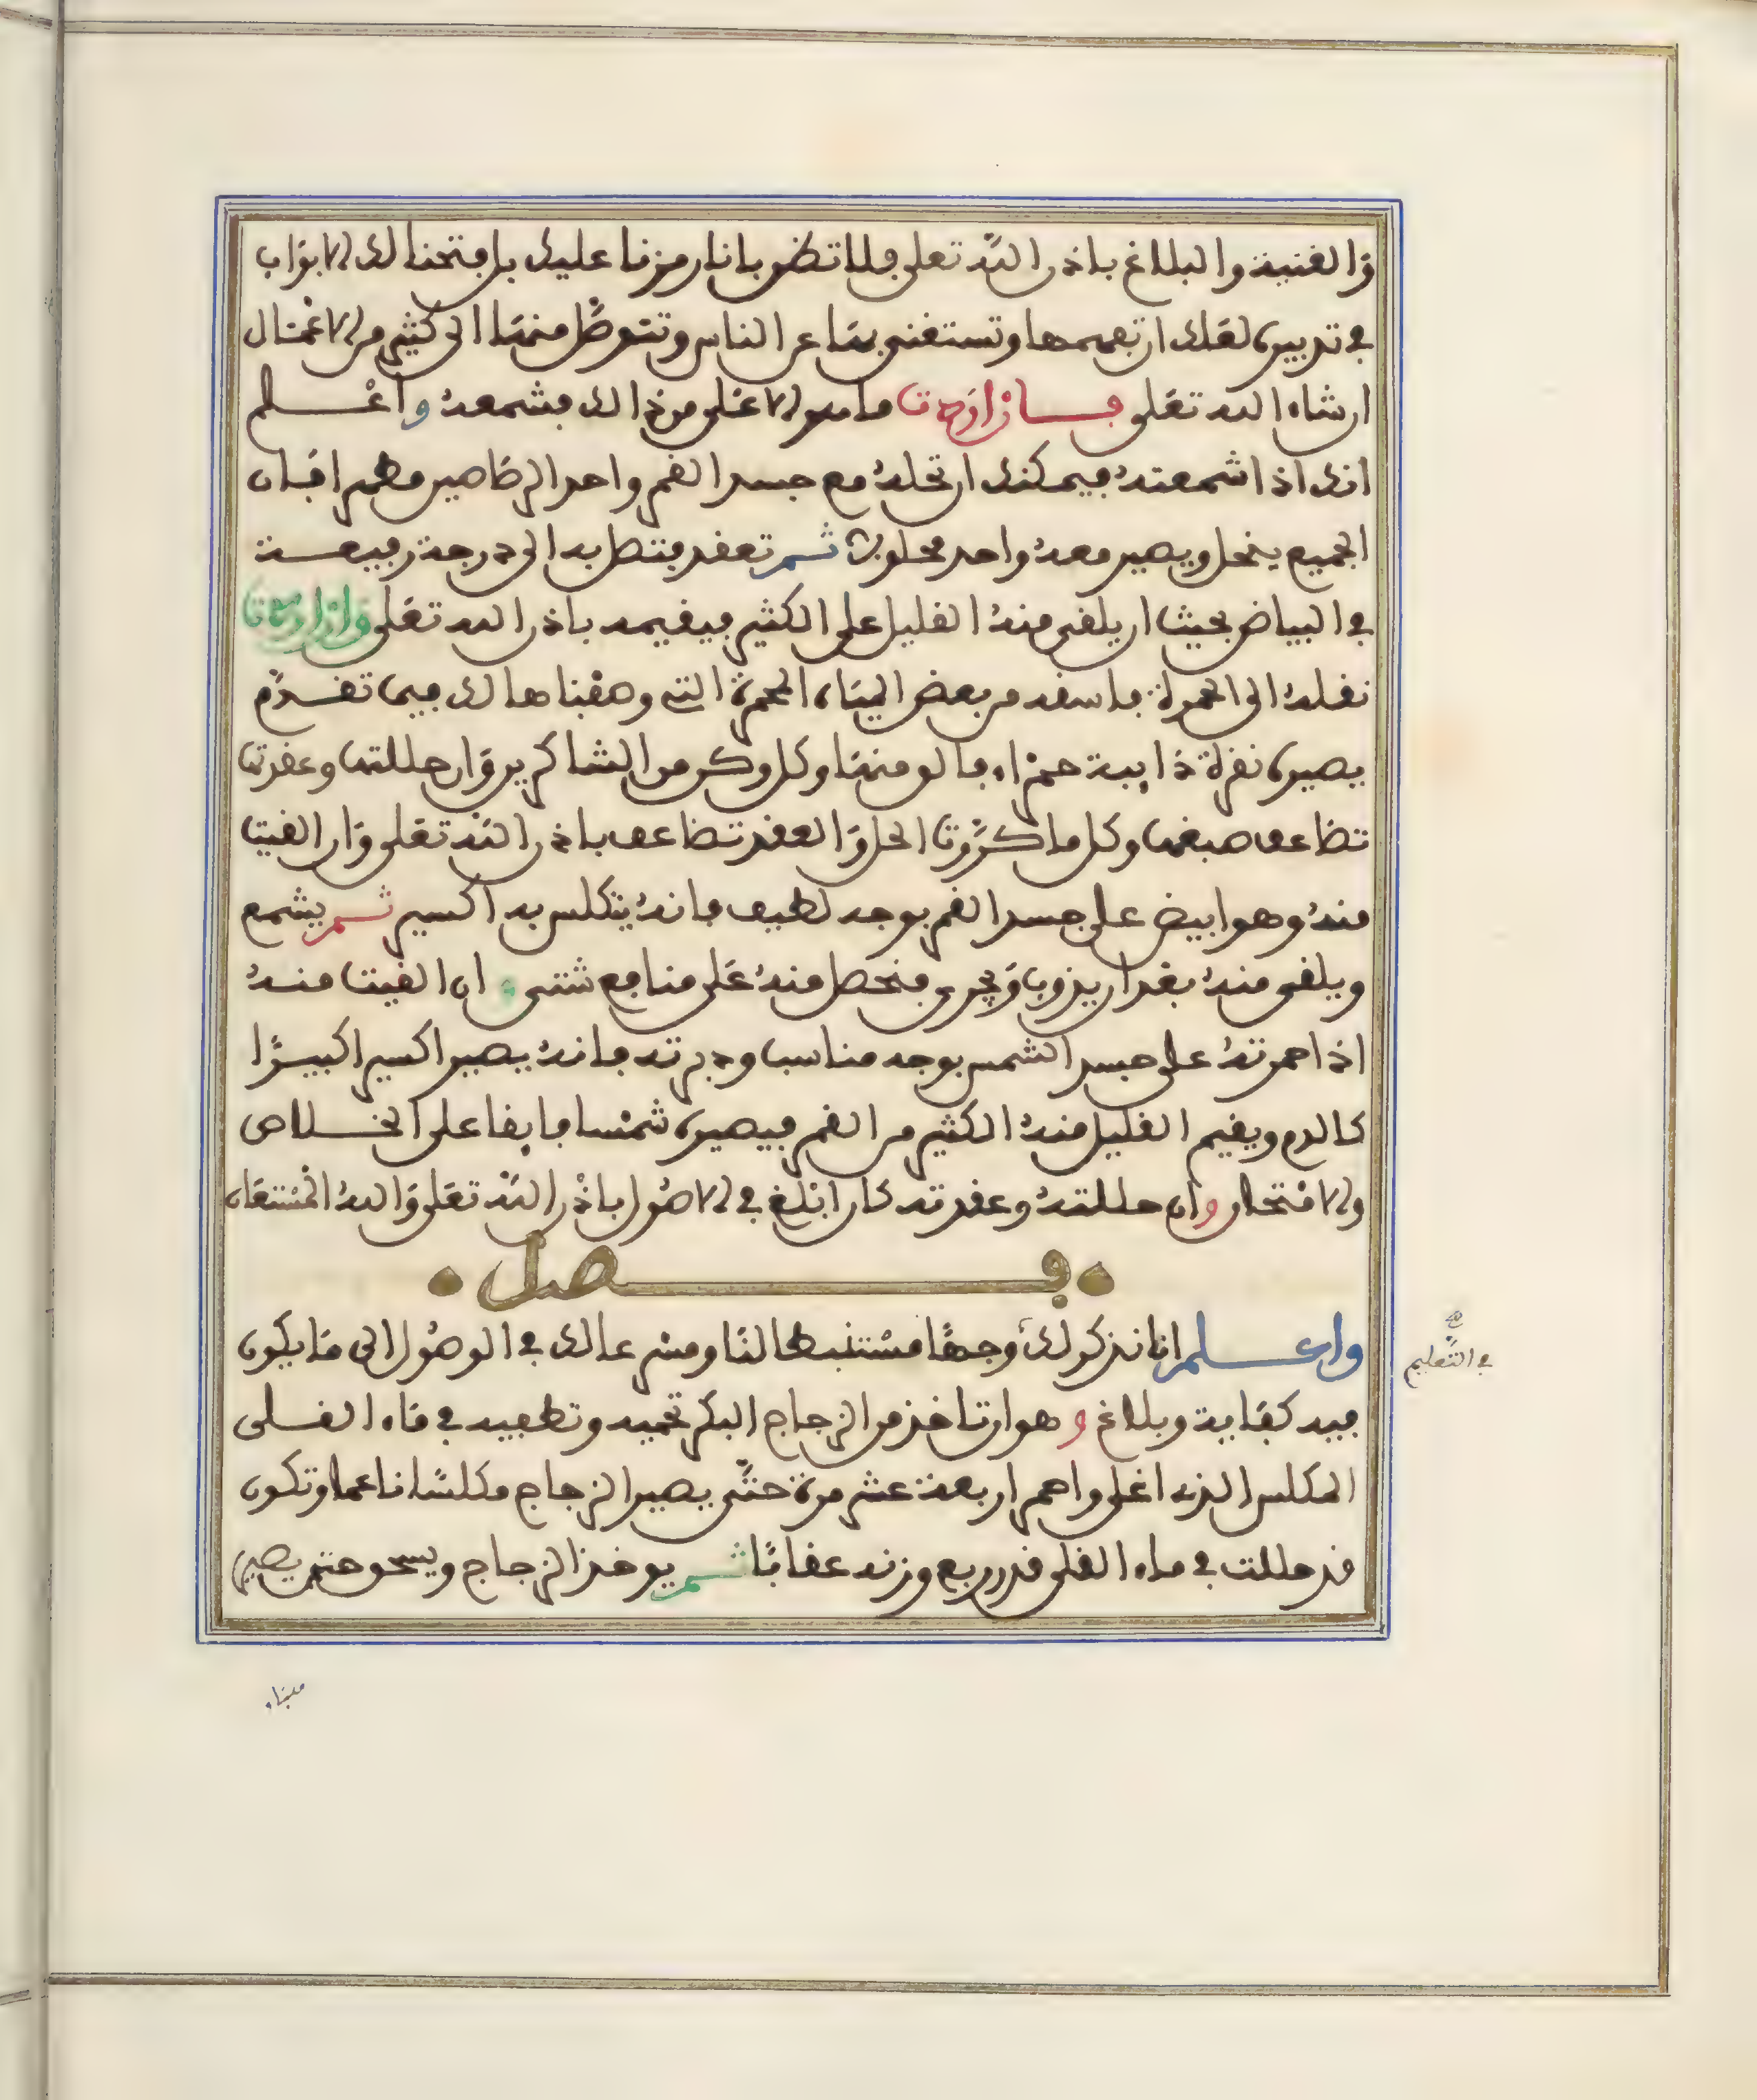 والغنية والبلاغ باذن الله تعلى فلا تظن بانا رمزنا عليك بل فتحنا لك الابواب
في تدبير لعلك ان تفهمها وتستغني بها عن الناس وتتوصل منها الى كثير من الاعمال
ان شاء الله تعلى فان اردت ما هو الاعلى من ذالك فشمعه واعلم
انك اذا شمعته فيمكنك ان تحله مع جسد القمر واحد الرصاصين مطهر افان
الجميع ينحل ويصير معه واحد محلول ثم تعقد فتصل به الى درجة رفيعة
في البياض بحيث ان يلفى منه القليل على الكثير فيقيمه باذن الله تعلى وان اردت
نقله الى الحمرة فاسقه من بعض المياه المحمرة التي وصفناها لك فيما تقدم
يصير نقرة ذايبة حمراء فالق منها وكل وكن من الشاكرين وان حللتها وعقدتها
تضاعف صبغها وكل ما كررت الحل والعقد تضاعف باذن الله تعلى وان القيت
منه وهو ابيض على جسد القمر بوجه لطيف فانه يتكلس به اكسير ثم يشمع
ويلقى منه بعد ان يذوب ويجري فتحصل منه على منافع شتى وان القيت منه
اذا حمرته على جسد الشمس بوجه مناسب ودبرته فانه يصير اكسيرا كبيرا
كالدم ويقيم القليل منه الكثير من القمر فيصير شمسا فايقا على الخلاص
والامتحان وان حللته وعقدته كان ابلغ في الاصول باذن الله تعلى والله المستعان
فصل
واعلم انا نذكر لك وجها مستنبطا لنا ومشرعا لك في الوصول الى ما يكون
فيه كفاية وبلاغ وهو ان تاخذ من الزجاج البكر تحميه وتطفيه في ماء القلى
المكلس الذي اغلى واحم اربعة عشر مرة حتى يصير الزجاج مكلسا ناعما وتكون
قد حللت في ماء القلى قدر ربع وزنه عقابا ثم يوخذ الزجاج ويسحق حتى يصير
في التعليم
هباء